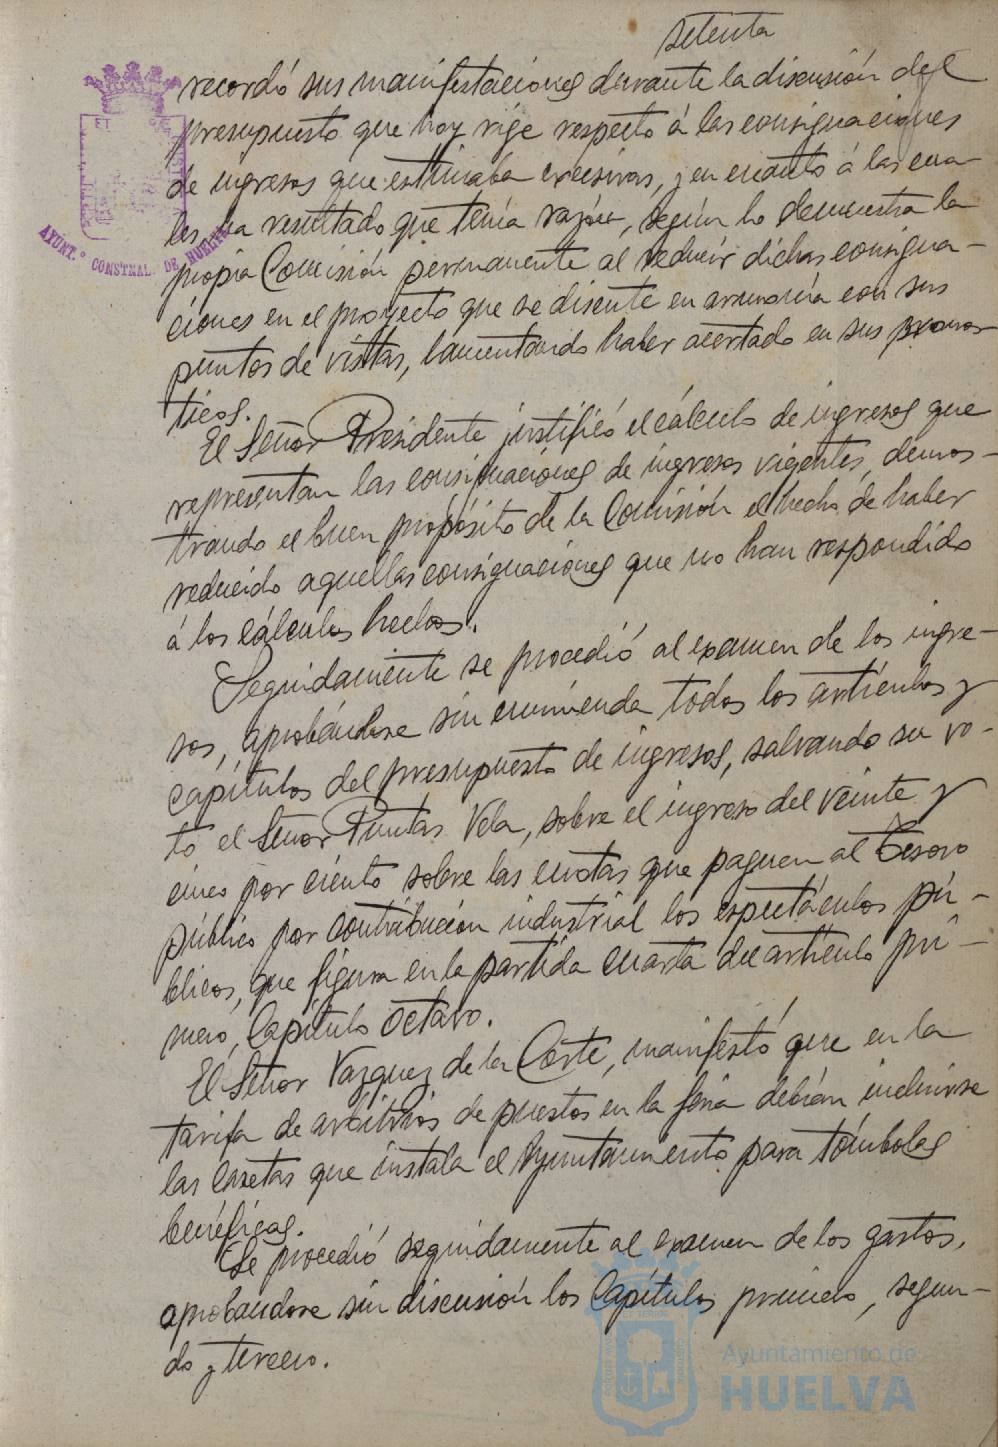 setenta
recordó sus manifestaciones durante la discusión del
presupuesto que hoy rige respecto á las consignaciones
de ingresos que estimaba excesivas, y en cuanto á las cua-
les ha resultado que tenía razón, según lo demuestra la
propia Comisión permanente al reducir dichas consigna-
ciones en el proyecto que se discute en armonía con sus
puntos de vistas, lamentando haber acertado en sus pronos
ticos.
El Señor Presidente justificó el cálculo de ingresos que
representan las consignaciones de ingresos vigentes, demos-
trando el buen propósito de la Comisión el hecho de haber
reducido aquellas consignaciones que no han respondido
á los cálculos hechos.
Seguidamente se procedió al examen de los ingre-
sos, aprobándose sin enmienda todos los artículos y
capítulos del presupuesto de ingresos, salvando su vo-
to el Señor Puntas Vela, sobre el ingreso del veinte y
cinco por ciento sobre las cuotas que paguen al Tesoro
público por contribución industrial los espectáculos pú-
blicos, que figura en la partida cuarta del artículo pri-
mero, Capítulo Octavo.
El Señor Vazquez de la Corte, manifestó que en la
tarifa de arbitrios de puestos en la feria debían incluirse
las casetas que instala el Ayuntamiento para tómbolas
benéficas.
Se procedió seguidamente al examen de los gastos,
aprobandose sin discusión los Capítulos primero, segun-
do y tercero.
AYUNT.º CONSTNAL. DE HUELVA
Ayuntamiento de
HUELVA